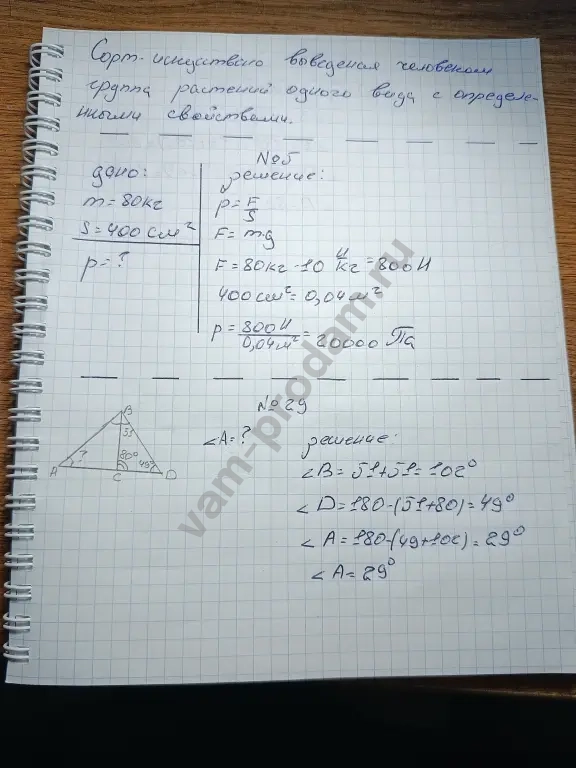 Сорт-искуствено выведеная человеком
группа растений одного вида с определе-
нными свойствами.
№5
дано:
m=80кг
S=400см²
p=?
решение:
p=F/S
F=mg
F=80кг·10 Н/кг=800Н
400см²=0,04м²
p=800Н/0,04м²=20000 Па
№29
B
51
A
?
80°
49°
C
D
∠A=?
решение:
∠B=51+51=102°
∠D=180-(51+80)=49°
∠A=180-(49+102)=29°
∠A=29°
vam-prodam.ru